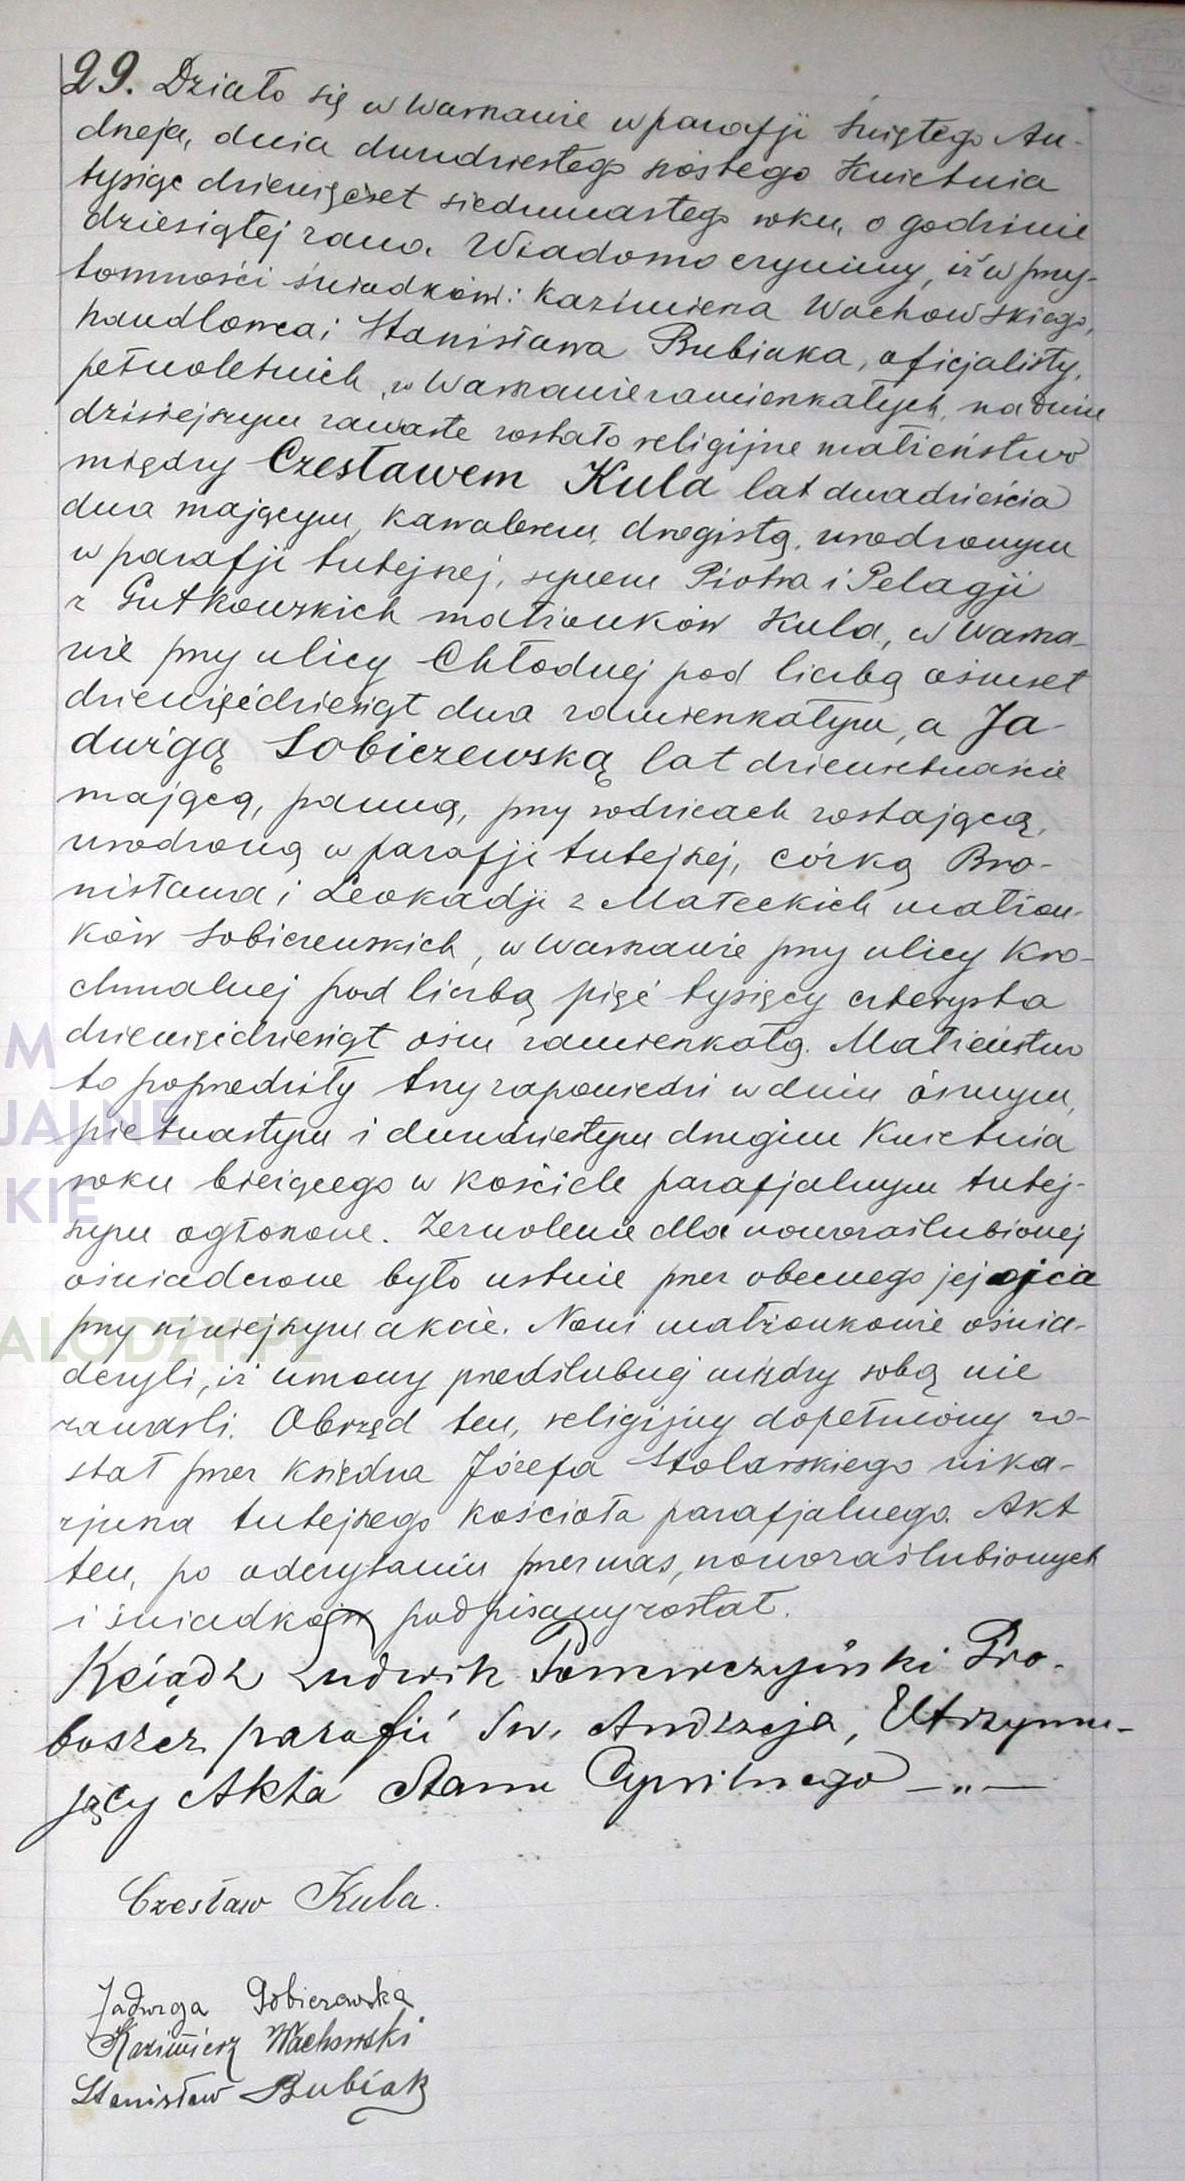 29. Działo się w Warszawie w parafji świętego An-
drzeja, dnia dwudziestego szóstego Kwietnia
tysiąc dziewięćset siedmnastego roku, o godzinie
dziesiątej rano. Wiadomo czynimy, iż w przy-
tomności świadków: Kazimierza Wachowskiego,
handlowca i Stanisława Bubiaka, oficjalisty,
pełnoletnich, w Warszawie zamieszkałych, na dniu
dzisiejszym zawarte zostało religijne małżeństwo
między Czesławem Kula lat dwadzieścia
dwa mającym, kawalerem, drogistą, urodzonym
w parafji tutejszej, synem Piotra i Pelagji
z Gutkowskich małżonków Kula, w Warsza-
wie przy ulicy Chłodnej pod liczbą ośmset
dziewięćdziesiąt dwa zamieszkałym, a Ja-
dwigą Sobiczewską lat dziewiętnaście
mającą, panną, przy rodzicach zostającą,
urodzoną w parafji tutejszej, córką Bro-
nisława i Leokadji z Małeckich małżon-
ków Sobiczewskich, w Warszawie przy ulicy Kro-
chmalnej pod liczbą pięć tysięcy czterysta
dziewięćdziesiąt ośm zamieszkałą. Małżeństwo
to poprzedziły trzy zapowiedzi w dniu ósmym,
piętnastym i dwudziestym drugim Kwietnia
roku bieżącego w kościele parafjalnym tutej-
szym ogłoszone. Zezwolenie dla nowozaślubionej
oświadczone było ustnie przez obecnego jej ojca
przy niniejszym akcie. Nowi małżonkowie oświa-
dczyli, iż umowy przedślubnej między sobą nie
zawarli. Obrzęd ten, religijny dopełniony zo-
stał przez księdza Józefa Stolarskiego wika-
rjusza tutejszego kościoła parafjalnego. Akt
ten, po odczytaniu przez nas, nowozaślubionych
i świadków podpisany został.
Ksiądz Ludwik Pomirczyński Pro-
boszcz parafii Św. Andrzeja, Utrzymu-
jący Akta Stanu Cywilnego —„—
Czesław Kula.
Jadwiga Sobiczewska
Kazimierz Wachowski
Stanisław Bubiak
M
JALNE
KIE
ALODZY.PL